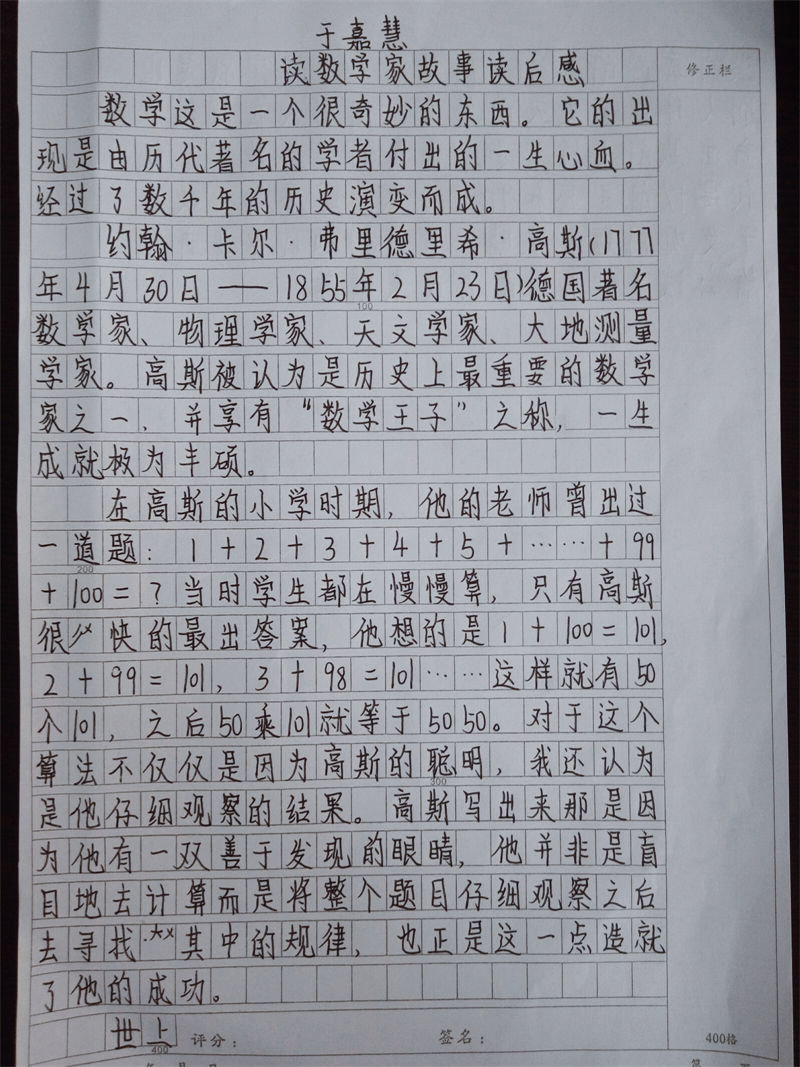 于嘉慧
读数学家故事读后感
修正栏
数学这是一个很奇妙的东西。它的出
现是由历代著名的学者付出的一生心血。
经过了数千年的历史演变而成。
约翰·卡尔·弗里德里希·高斯(1777
年4月30日——1855年2月23日)德国著名
100
数学家、物理学家、天文学家、大地测量
学家。高斯被认为是历史上最重要的数学
家之一、并享有“数学王子”之称,一生
成就极为丰硕。
在高斯的小学时期,他的老师曾出过
一道题:1+2+3+4+5+……+99
200
+100=?当时学生都在慢慢算,只有高斯
很快的最出答案,他想的是1+100=101,
2+99=101,3+98=101……这样就有50
个101,之后50乘101就等于5050。对于这个
算法不仅仅是因为高斯的聪明,我还认为
300
是他仔细观察的结果。高斯写出来那是因
为他有一双善于发现的眼睛,他并非是盲
目地去计算而是将整个题目仔细观察之后
去寻找其中的规律,也正是这一点造就
了他的成功。
世上
400
评分:
签名:
400格